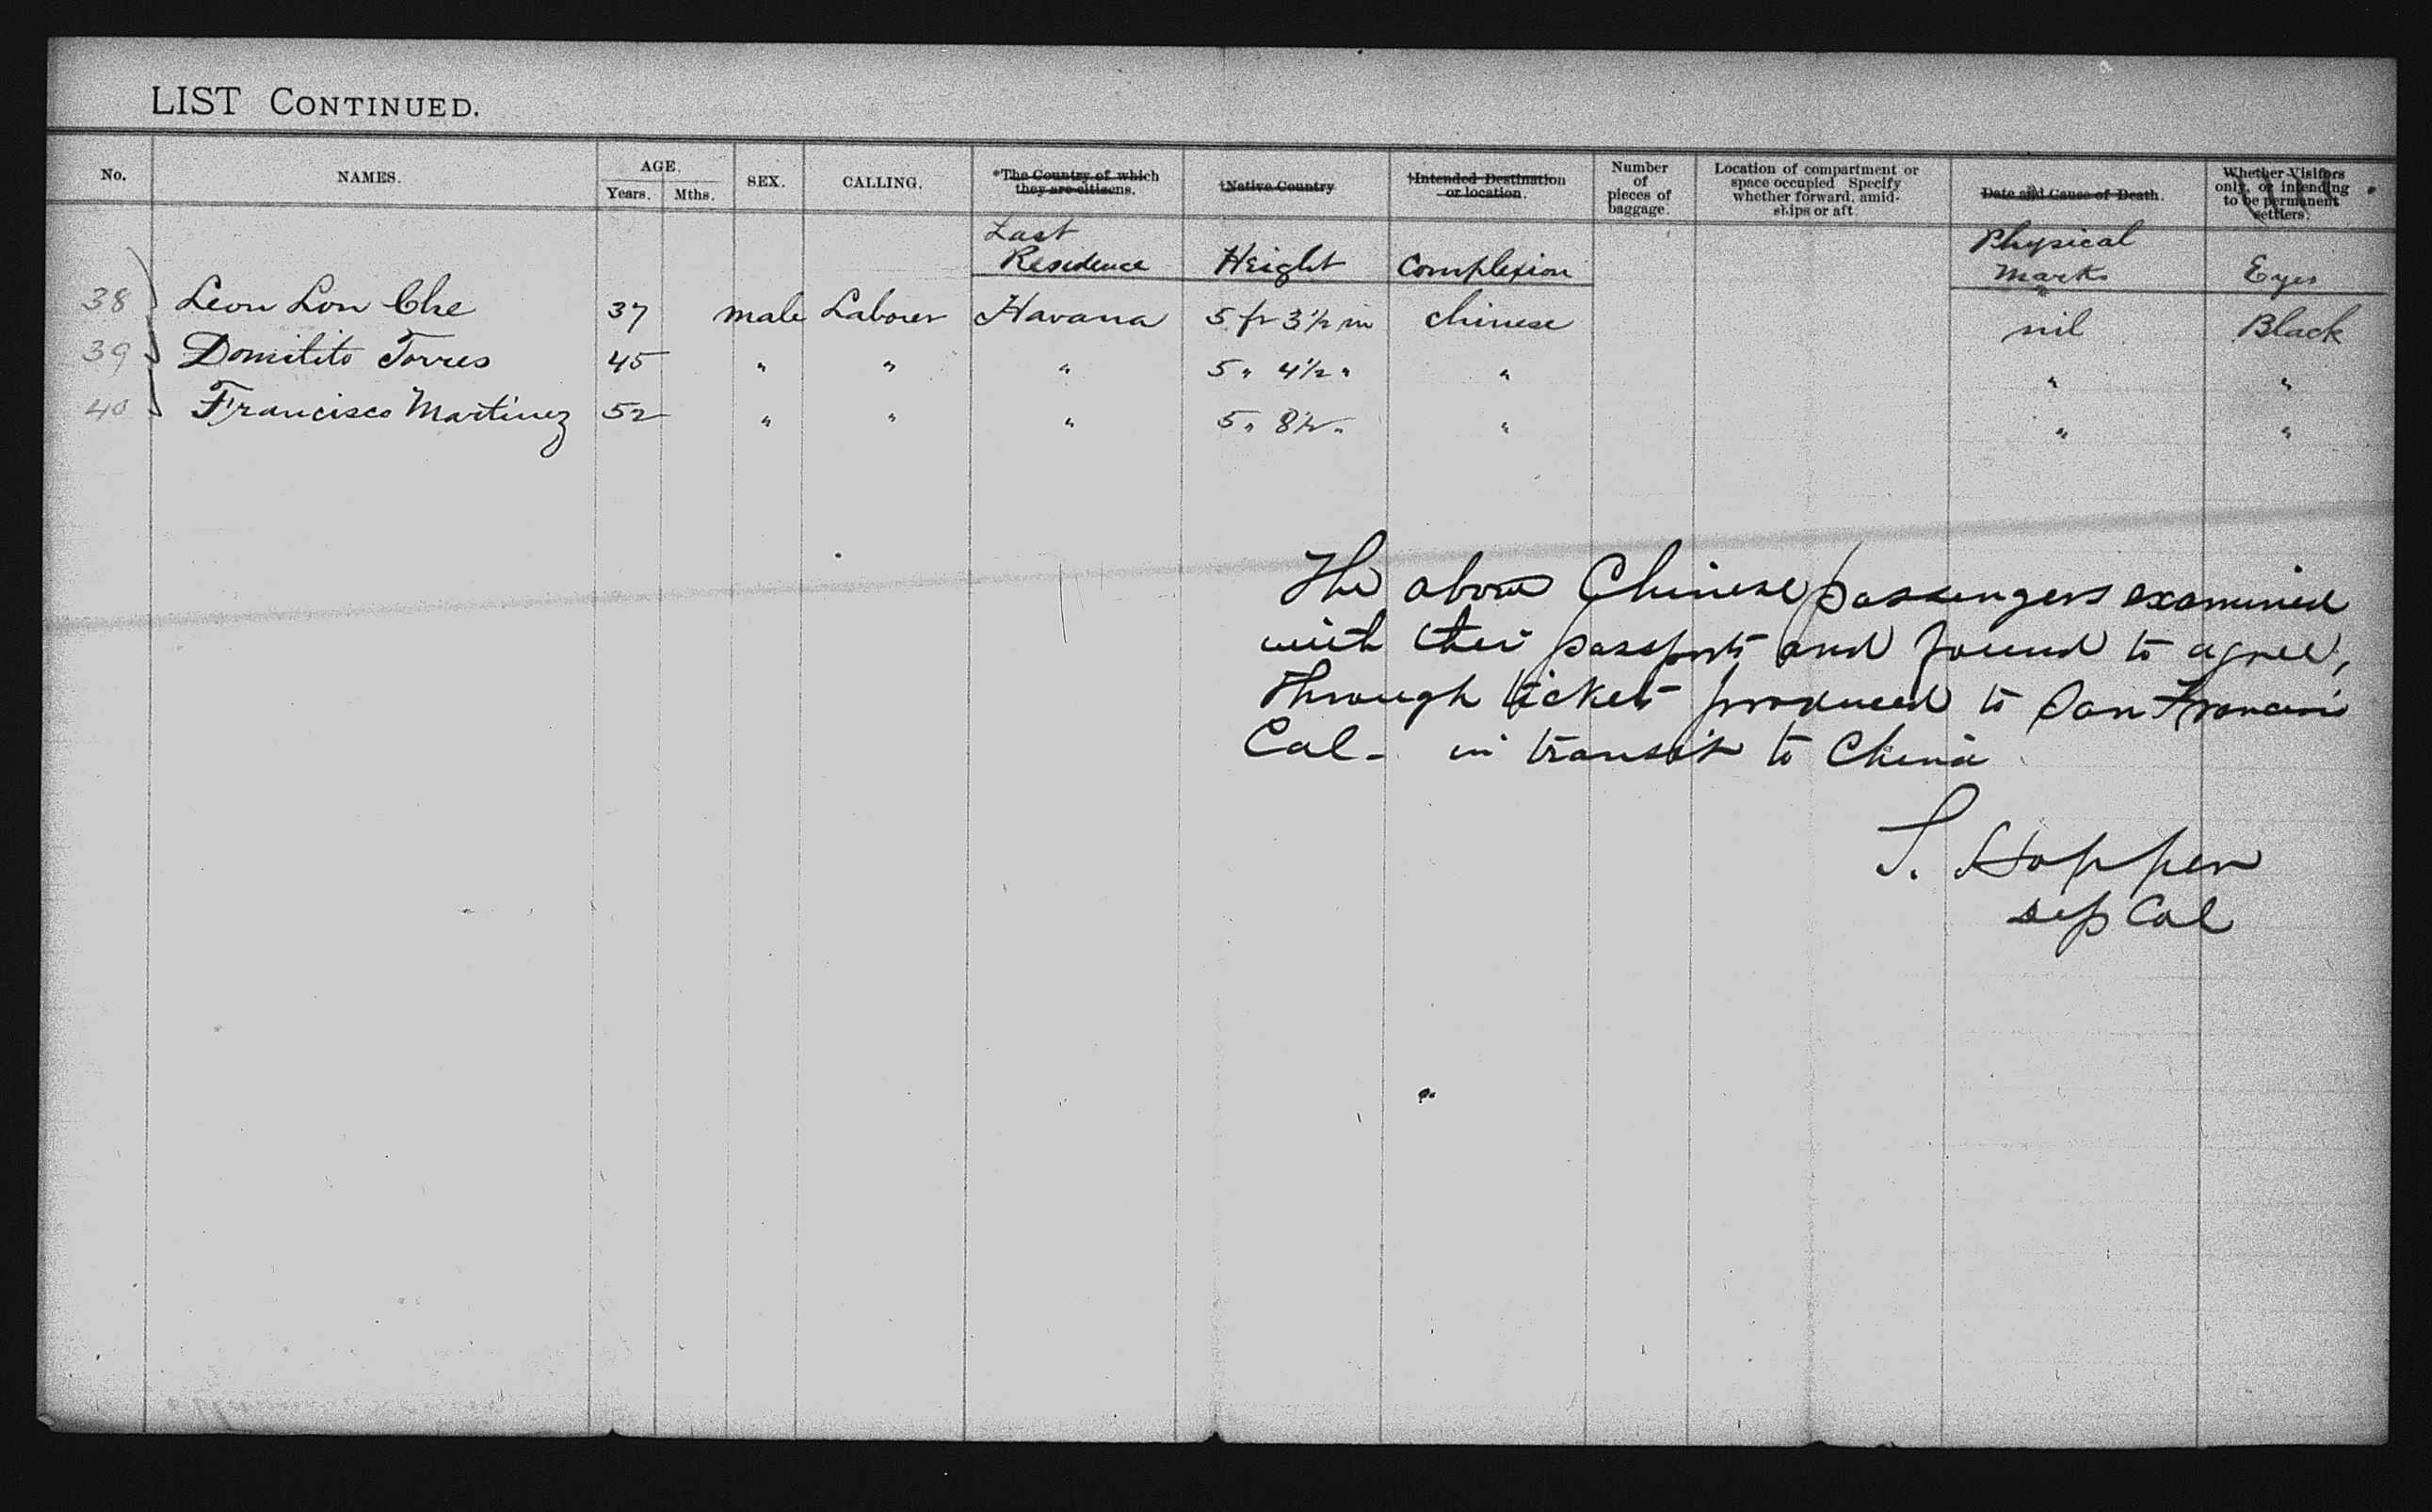 LIST CONTINUED.
No. NAMES. AGE. Years. Mths. SEX. CALLING. *The Country of which they are citizens. †Native Country ‡Intended Destination or location. Number of pieces of baggage. Location of compartment or space occupied Specify whether forward, amidships or aft Date and Cause of Death. Whether Visitors only, or intending to be permanent settlers.
Last Residence Height Complexion Physical Marks Eyes
38 Leon Lon Che 37 male Laborer Havana 5 ft 3 1/2 in chinese nil Black
39 Domilito Torres 45 " " " 5 " 4 1/2 " " " "
40 Francisco Martinez 52 " " " 5 " 8 1/2 " " " "
The above Chinese passengers examined
with their passports and found to agree,
Through tickets produced to San Francisco
Cal - in transit to China
S. Hopper
dep Col